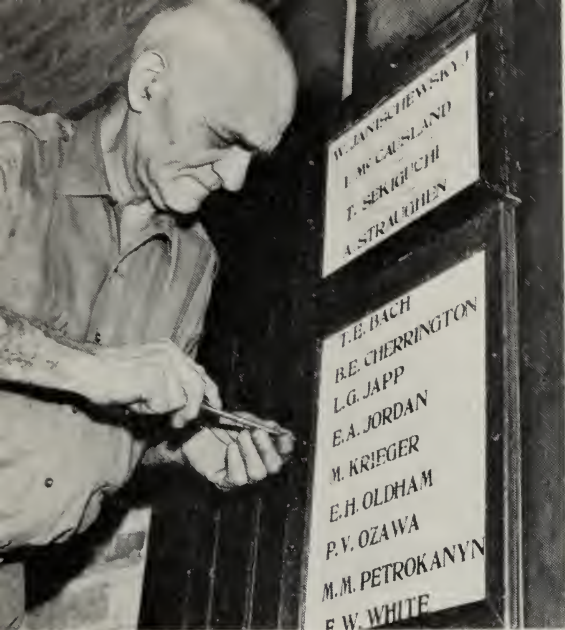 W. JANISCHEWSKYJ
MCCAUSLAND
T. SEKIGUCHI
A. STRAUGHEN
T.E. BACH
B.E. CHERRINGTON
L.G. JAPP
E.A. JORDAN
M. KRIEGER
E.H. OLDHAM
P.V. OZAWA
M.M. PETROKANYN
W. WHITE